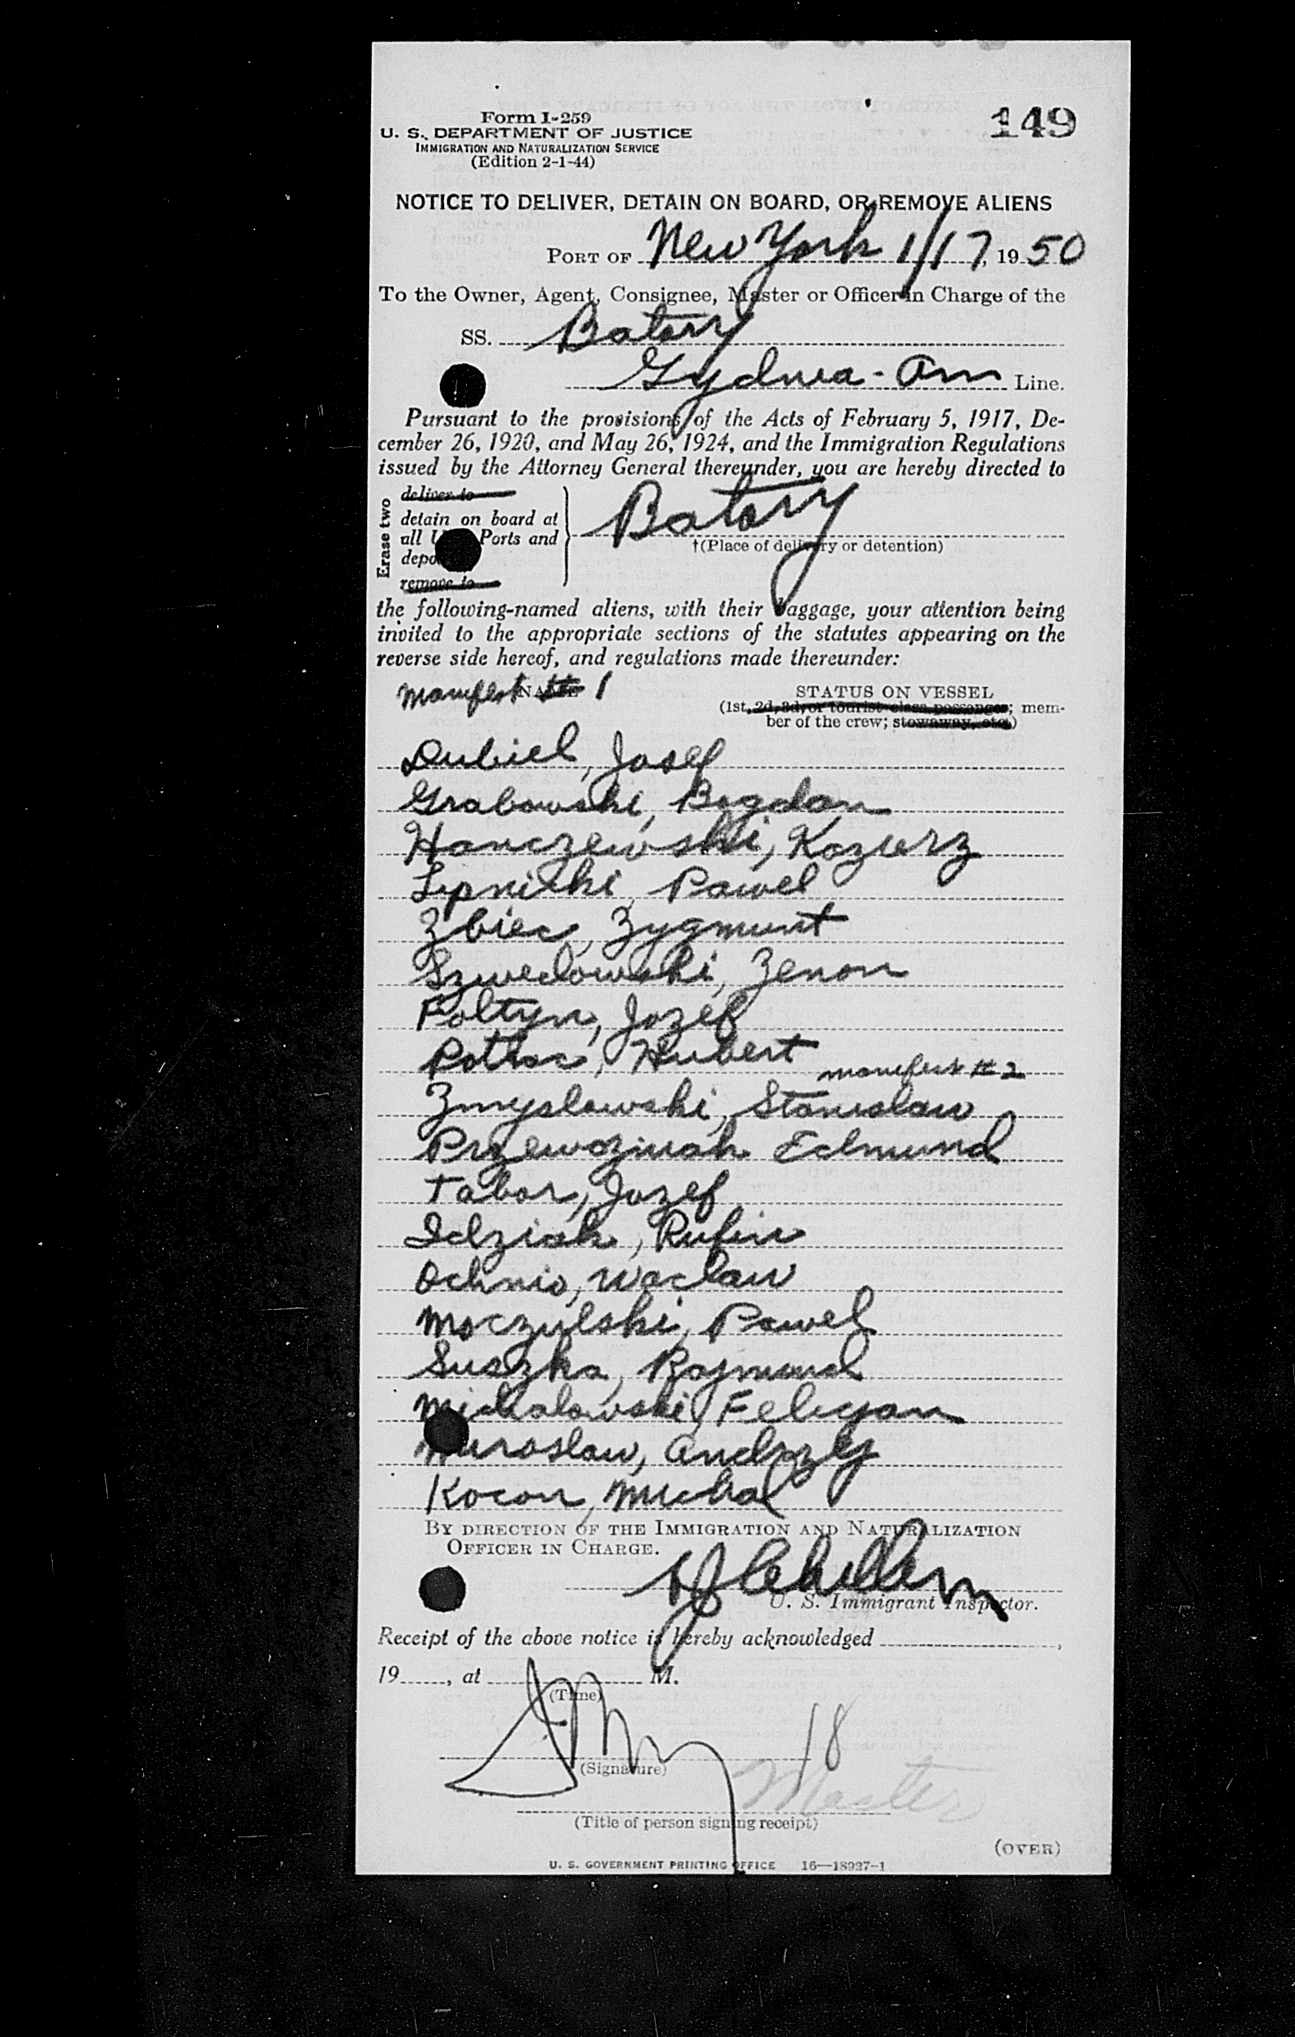 149
Form I-259
U. S. DEPARTMENT OF JUSTICE
IMMIGRATION AND NATURALIZATION SERVICE
(Edition 2-1-44)
NOTICE TO DELIVER, DETAIN ON BOARD, OR REMOVE ALIENS
PORT OF New York 1/17, 1950
To the Owner, Agent, Consignee, Master or Officer in Charge of the
SS. Batory
Gydnia-Am Line.
Pursuant to the provisions of the Acts of February 5, 1917, De-
cember 26, 1920, and May 26, 1924, and the Immigration Regulations
issued by the Attorney General thereunder, you are hereby directed to
Erase two
deliver to
detain on board at
all Ports and
remove to
Batory
†(Place of delivery or detention)
the following-named aliens, with their baggage, your attention being
invited to the appropriate sections of the statutes appearing on the
reverse side hereof, and regulations made thereunder:
manifest # 1
NAME
STATUS ON VESSEL
(1st, 2d, 3d, or tourist class passenger; mem-
ber of the crew; stowaway, etc.)
Dubiel, Josef
Grabowski, Bogdan
Hanczewski, Kazierz
Lipnicki, Pawel
Zbiec, Zygmunt
Szwedowski, Zenon
Foltyn, Jozef
Hubert
manifest # 2
Zmyslowski, Stanislaw
Przewozniak Edmund
Tabor, Jozef
Idziak, Rufin
Ochnio, Waclaw
Moczulski, Pawel
Suszka, Rajmund
Michalowski, Felicyan
Miroslaw, Andrzej
Kocon, Michal
BY DIRECTION OF THE IMMIGRATION AND NATURALIZATION
OFFICER IN CHARGE.
U. S. Immigrant Inspector.
Receipt of the above notice is hereby acknowledged ,
19 , at M.
(Time)
18
(Signature)
Master
(Title of person signing receipt)
(OVER)
U. S. GOVERNMENT PRINTING OFFICE 16—18927-1